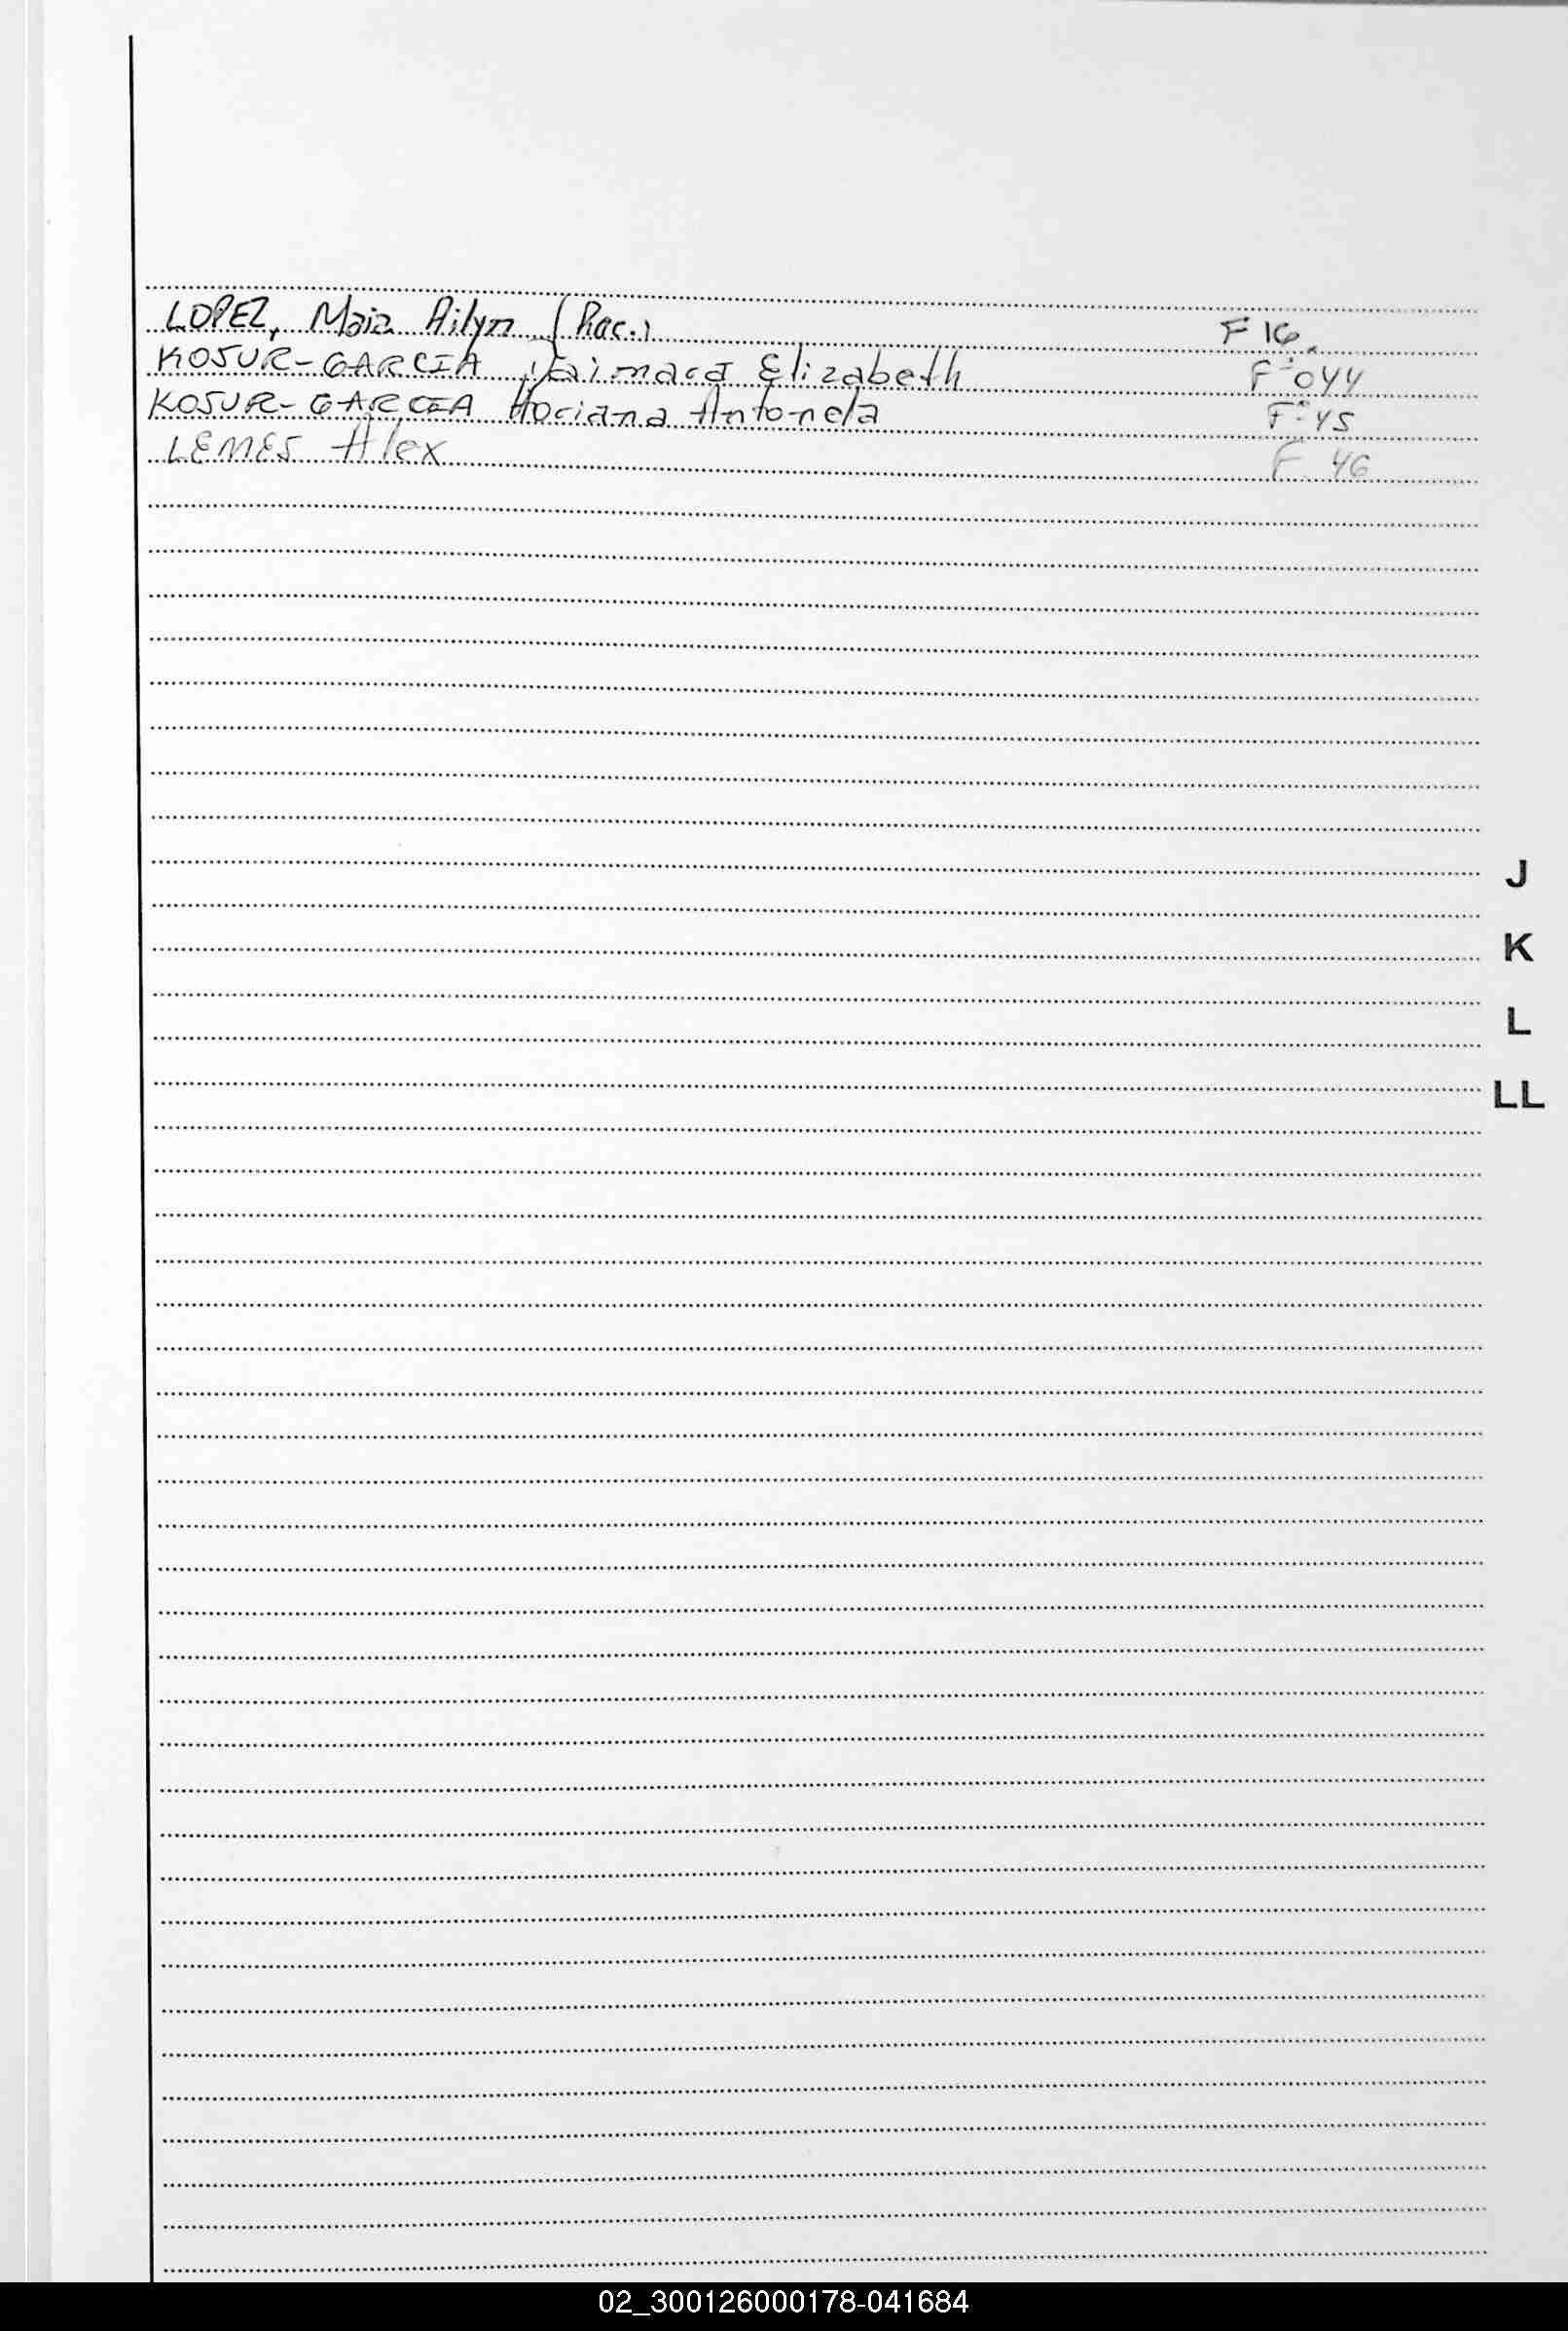 LOPEZ, Maia Ailyn (Rac.) F 16.
KOSUR-GARCIA Yaimara Elizabeth Fº 044
KOSUR-GARCIA Antonela Fº 45
LEMES Alex F 46
J
K
L
LL
02_300126000178-041684